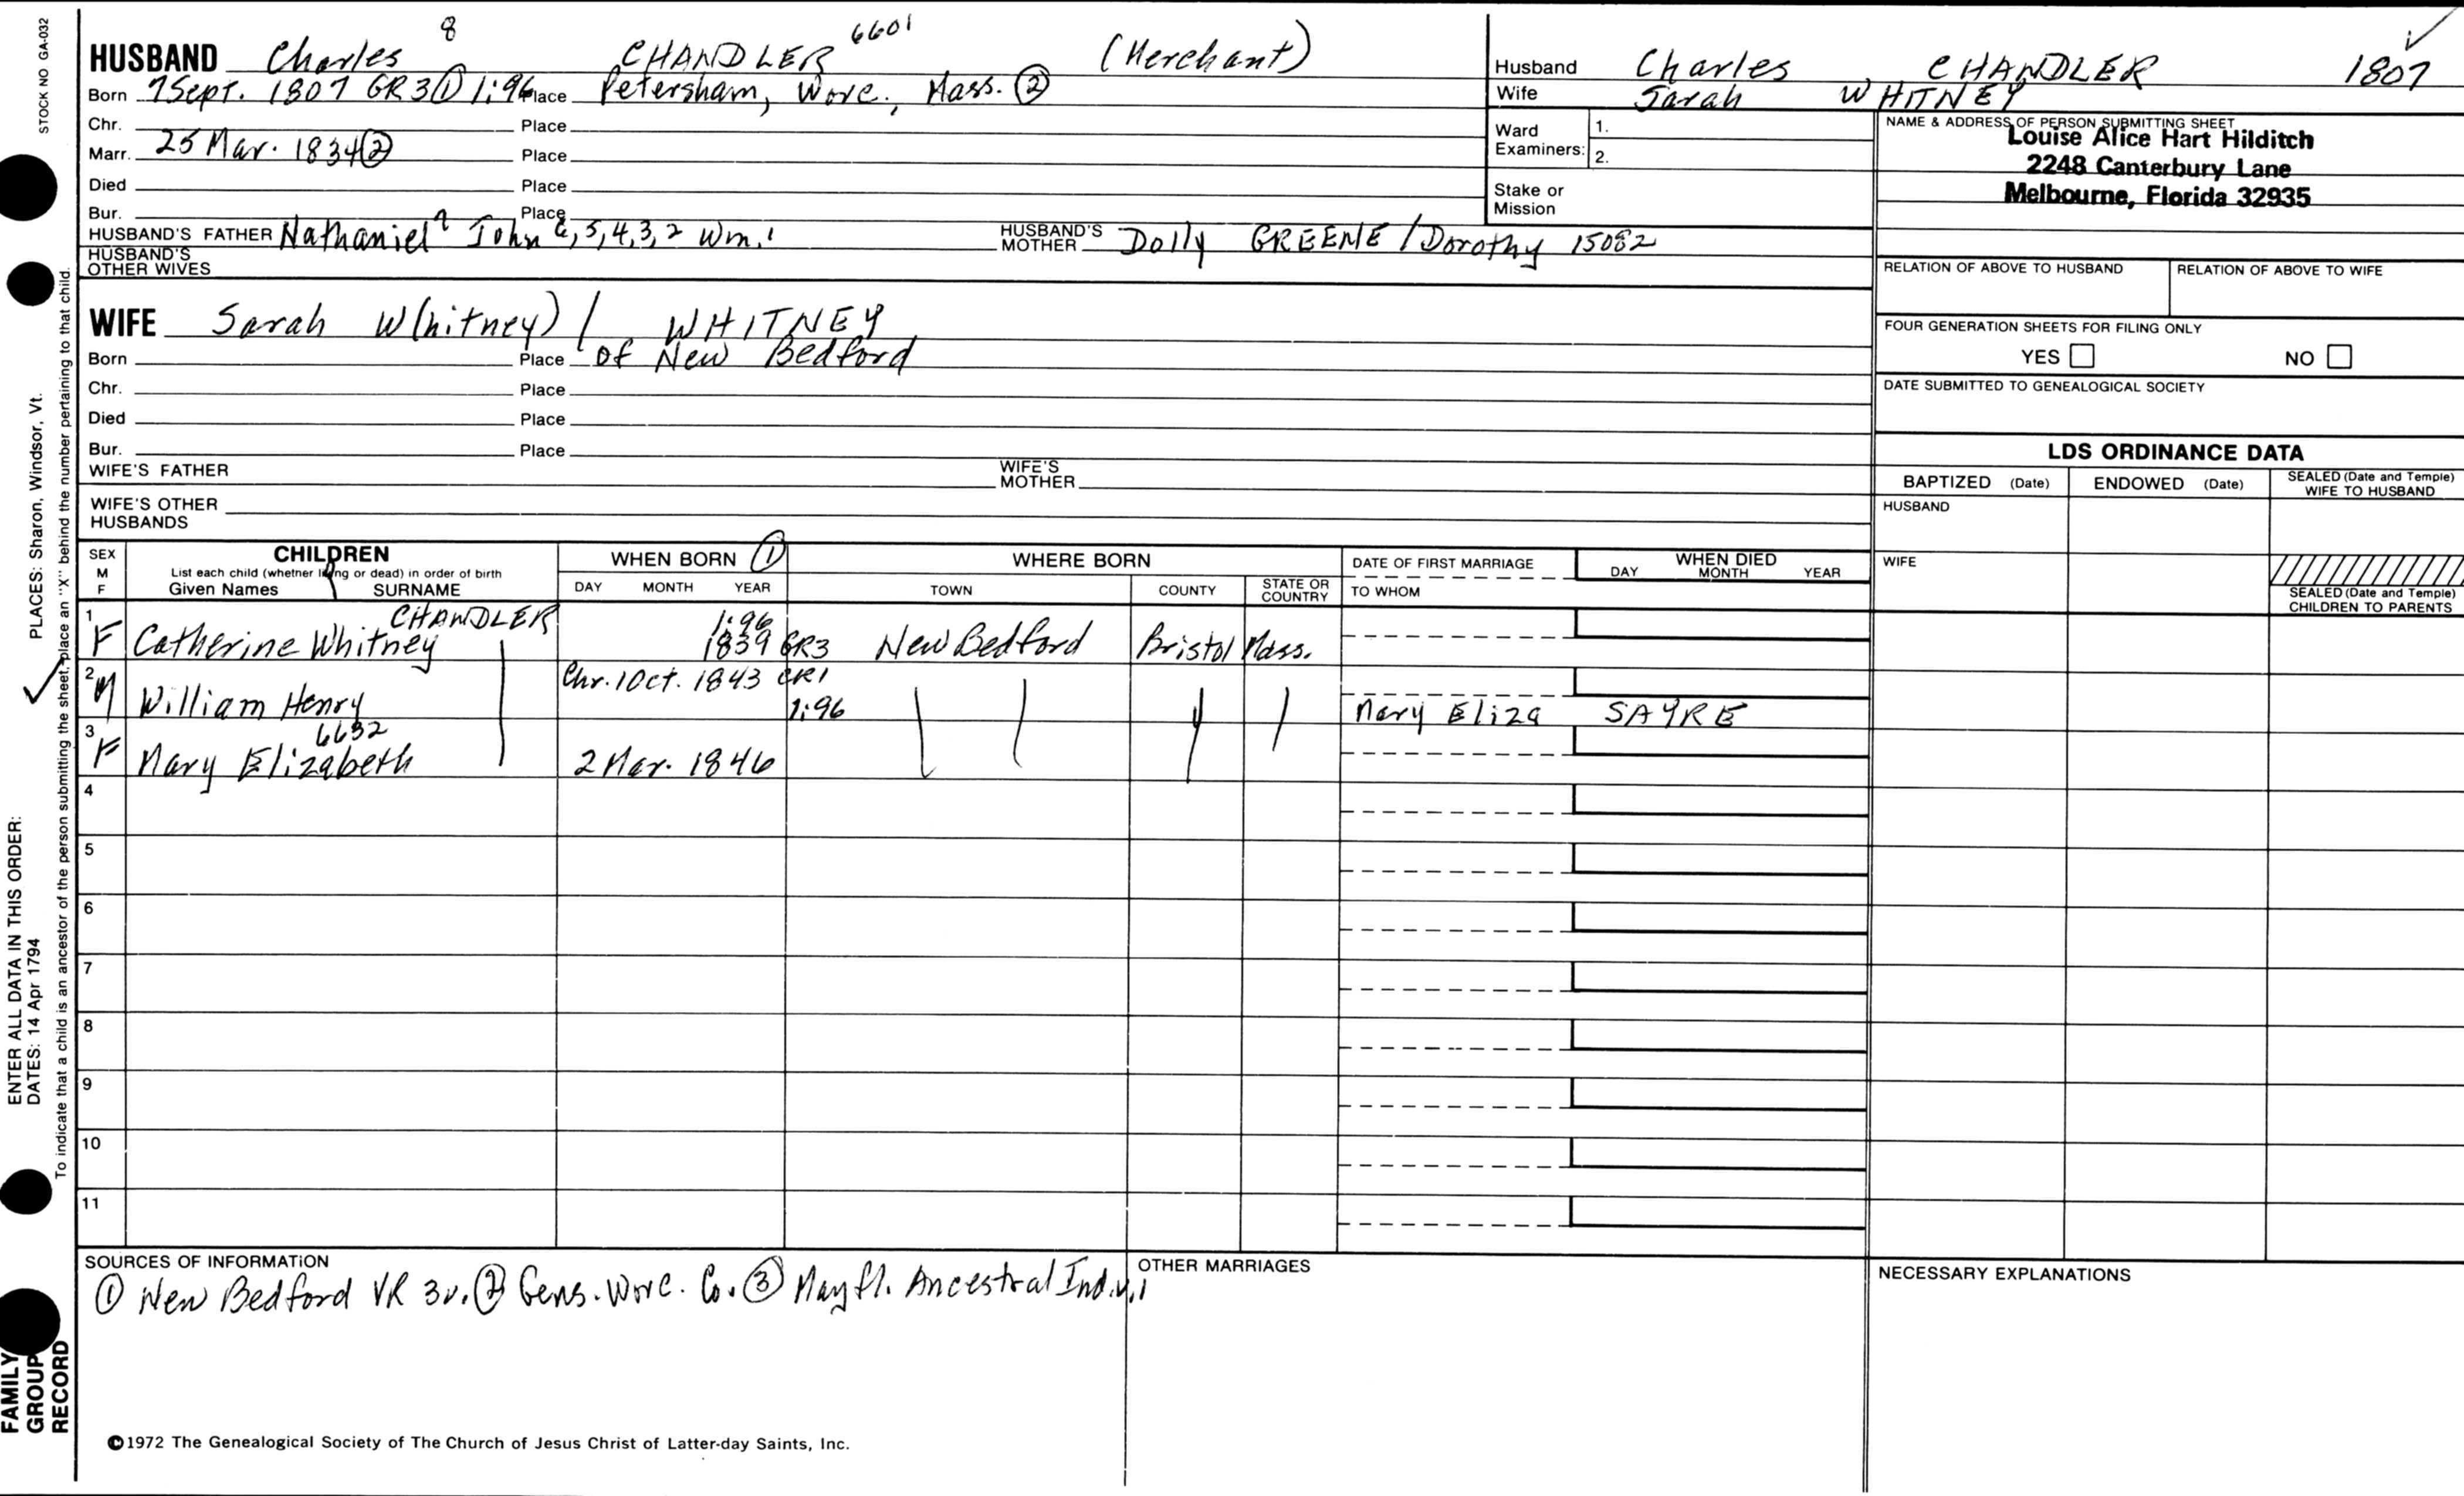 STOCK NO GA-032
HUSBAND Charles 8 CHANDLER 6601 (Merchant)
Born 7 Sept. 1807 GR3 ① 1:96 Place Petersham, Worc., Mass. ②
Chr. Place
Marr. 25 Mar. 1834 ② Place
Died Place
Bur. Place
HUSBAND'S FATHER Nathaniel 7 John 6,5,4,3,2 Wm. 1 HUSBAND'S MOTHER Dolly GREENE / Dorothy 15082
HUSBAND'S OTHER WIVES
WIFE Sarah W(hitney) / WHITNEY
Born Place of New Bedford
Chr. Place
Died Place
Bur. Place
WIFE'S FATHER WIFE'S MOTHER
WIFE'S OTHER HUSBANDS
Husband Charles CHANDLER 1807
Wife Sarah WHITNEY
Ward Examiners: 1.
2.
Stake or Mission
NAME & ADDRESS OF PERSON SUBMITTING SHEET
Louise Alice Hart Hilditch
2248 Canterbury Lane
Melbourne, Florida 32935
RELATION OF ABOVE TO HUSBAND RELATION OF ABOVE TO WIFE
FOUR GENERATION SHEETS FOR FILING ONLY
YES NO
DATE SUBMITTED TO GENEALOGICAL SOCIETY
LDS ORDINANCE DATA
BAPTIZED (Date) ENDOWED (Date) SEALED (Date and Temple) WIFE TO HUSBAND
HUSBAND
WIFE
SEALED (Date and Temple) CHILDREN TO PARENTS
SEX M F CHILDREN WHEN BORN ① WHERE BORN DATE OF FIRST MARRIAGE WHEN DIED
List each child (whether living or dead) in order of birth
Given Names SURNAME DAY MONTH YEAR TOWN COUNTY STATE OR COUNTRY TO WHOM DAY MONTH YEAR
CHANDLER 1:96
1 F Catherine Whitney 1839 GR3 New Bedford Bristol Mass.
Chr. 1 Oct. 1843 CR1
2 M William Henry 1:96 Mary Eliza SAYRE
6632
3 F Mary Elizabeth 2 Mar. 1846
4
5
6
7
8
9
10
11
SOURCES OF INFORMATION
① New Bedford VR 3v. ② Gens. Worc. Co. ③ Mayfl. Ancestral Ind. v.1
OTHER MARRIAGES
NECESSARY EXPLANATIONS
©1972 The Genealogical Society of The Church of Jesus Christ of Latter-day Saints, Inc.
ENTER ALL DATA IN THIS ORDER:
DATES: 14 Apr 1794 PLACES: Sharon, Windsor, Vt.
To indicate that a child is an ancestor of the person submitting the sheet, place an "X" behind the number pertaining to that child.
FAMILY
GROUP
RECORD